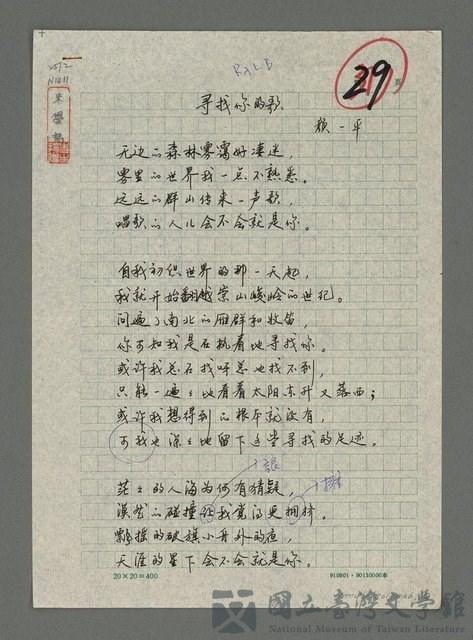 29
寻找你的歌
赖一平
无边的森林雾霭好凄迷，
雾里的世界我一点不熟悉。
远远的群山传来一声歌，
唱歌的人儿会不会就是你。
自我初识世界的那一天起，
我就开始翻越崇山峻岭的世纪。
问遍了南北的雁群和牧笛，
你可知我是在执着地寻找你。
或许我总在找呀总也找不到，
只能一遍遍地看着太阳东升又落西；
或许我想得到的根本就没有，
可我也深深地留下这些寻找的足迹。
茫茫的人海为何有猜疑，
漠然的碰撞让我觉得更拥挤。
飘摇的破旗小舟外的夜，
天涯的星下会不会就是你。
20×20=400
國立臺灣文學館
National Museum of Taiwan Literature